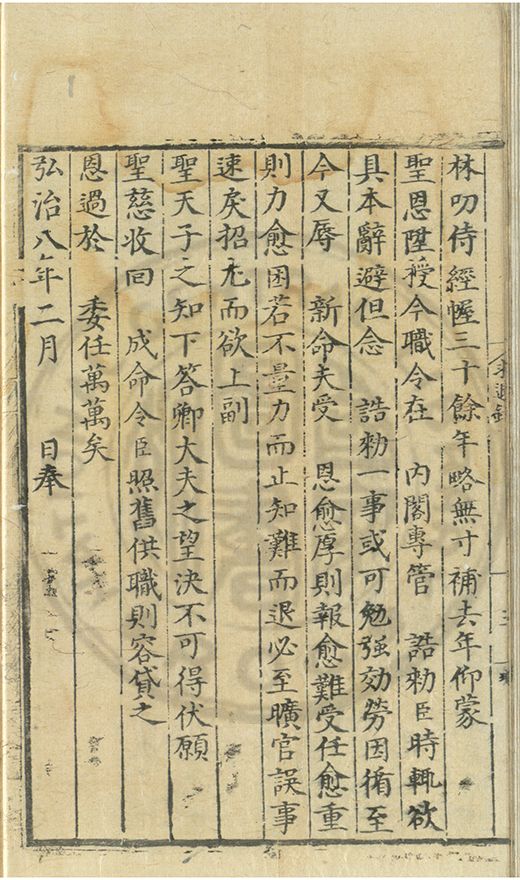 林叨侍經幄三十餘年略無寸補去年仰蒙
聖恩陞授今職令在　内閣專管　誥勑臣時輒欲
具本辭避但念　誥勑一事或可勉强効勞因循至
今又辱　新命夫受　恩愈厚則報愈難受任愈重
則力愈困若不量力而止知難而退必至曠官誤事
速戾招尤而欲上副
聖天子之知下答卿大夫之望決不可得伏願
聖慈收回　成命令臣照舊供職則容貸之
恩過於　委任萬萬矣
弘治八年二月　　日奉